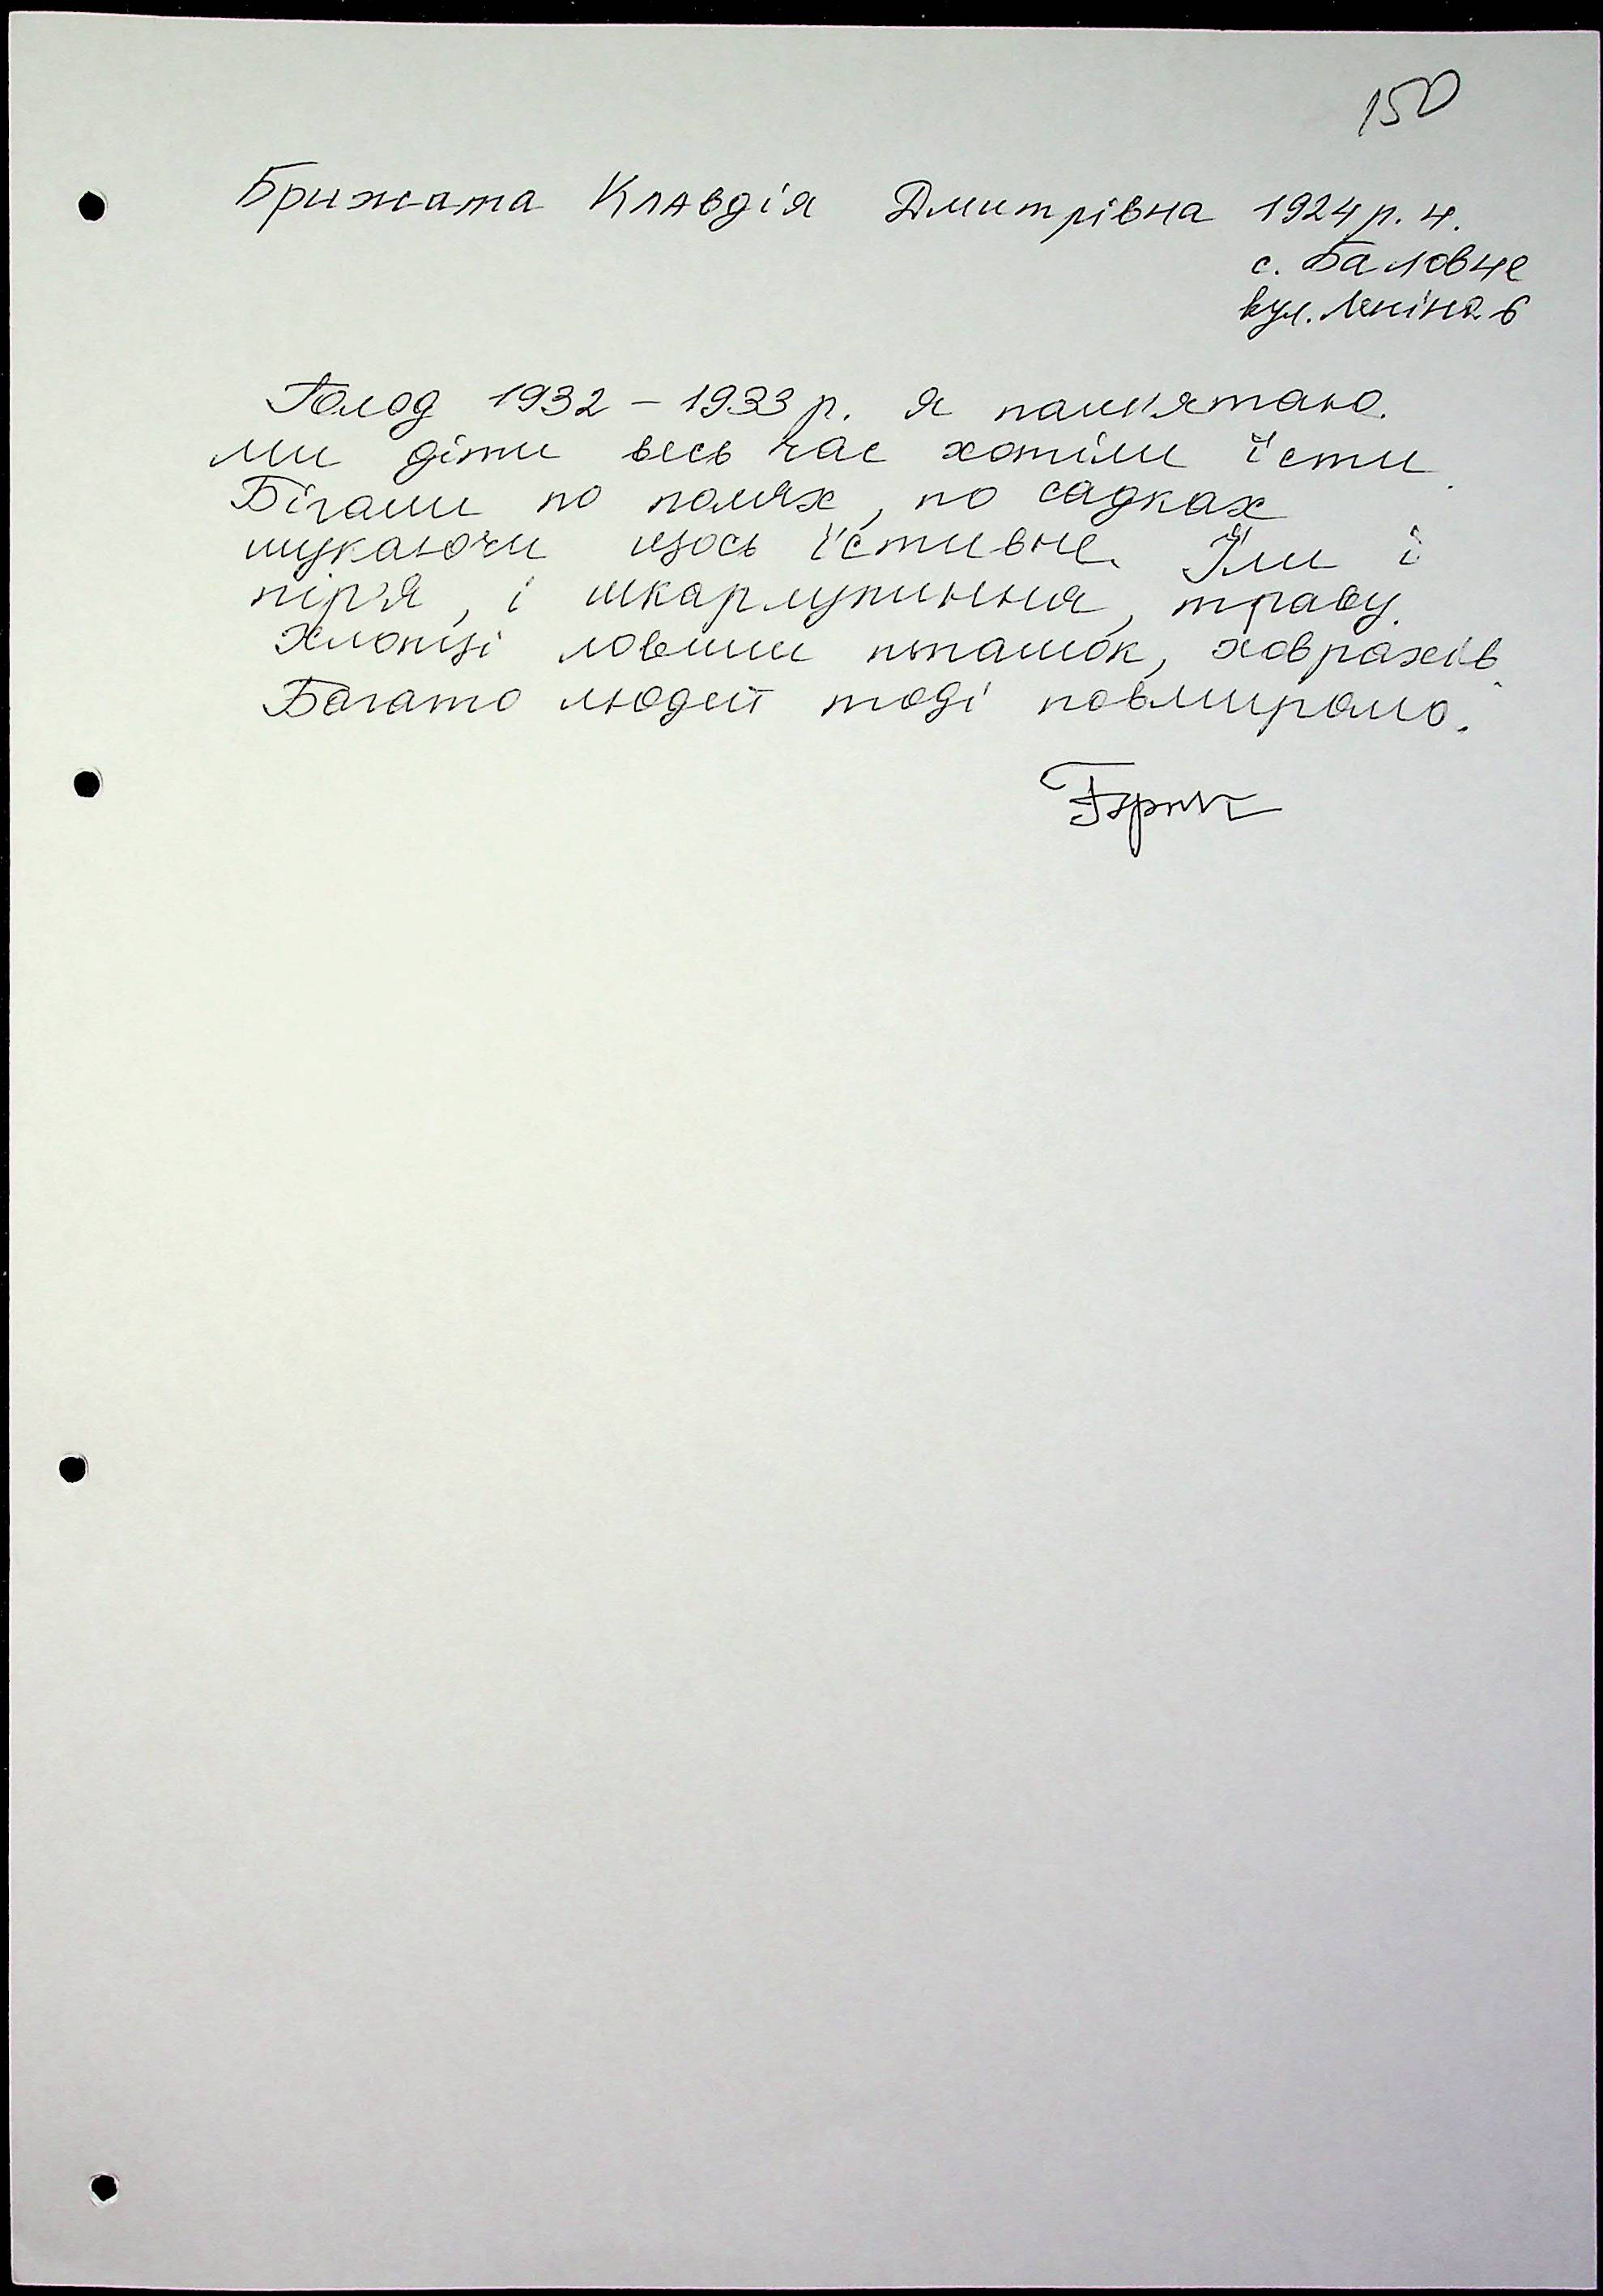 150
Брижата Клавдія Дмитрівна 1924 р. н.
с. Баловне
вул. Леніна 6
Голод 1932 – 1933 р. я пам'ятаю.
Ми діти весь час хотіли їсти.
Бігали по полях, по садках
шукаючи щось їстивне. Їли і
пір'я, і шкарлупиння, траву.
Хлопці ловили пташок, ховрахів.
Багато людей тоді повмирало.